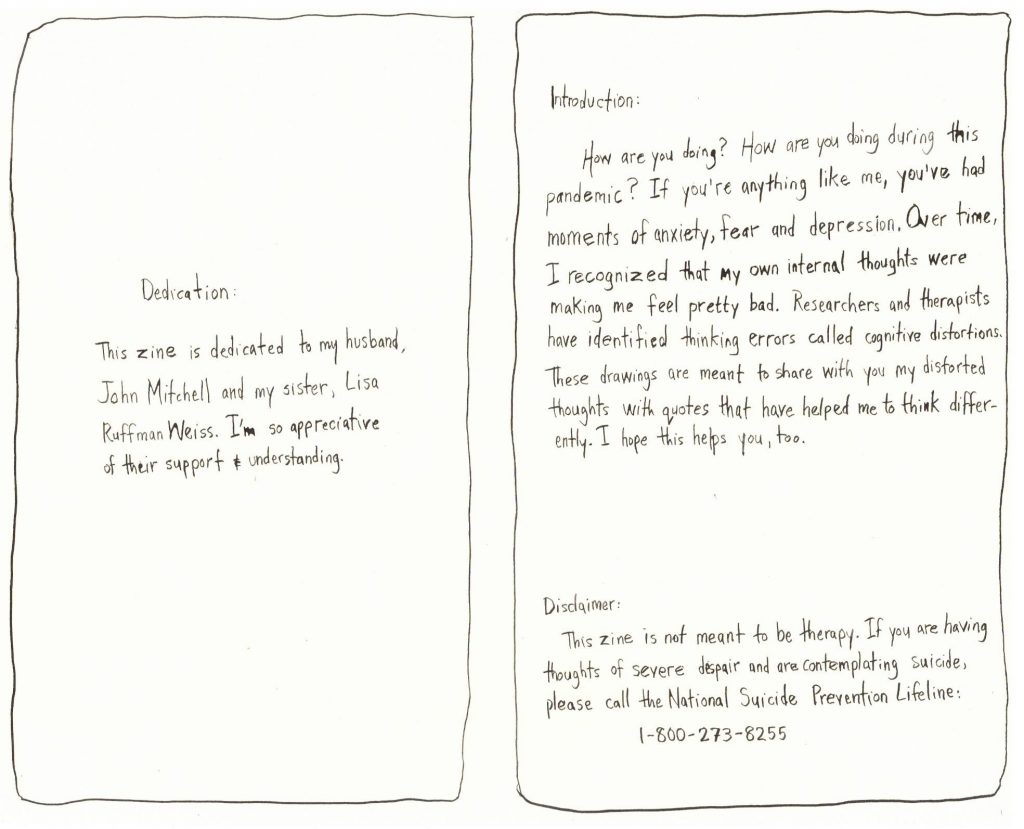 Dedication:
This zine is dedicated to my husband,
John Mitchell and my sister, Lisa
Ruffman Weiss. I'm so appreciative
of their support & understanding.
Introduction:
How are you doing? How are you doing during this
pandemic? If you're anything like me, you've had
moments of anxiety, fear and depression. Over time,
I recognized that my own internal thoughts were
making me feel pretty bad. Researchers and therapists
have identified thinking errors called cognitive distortions.
These drawings are meant to share with you my distorted
thoughts with quotes that have helped me to think differ-
ently. I hope this helps you, too.
Disclaimer:
This zine is not meant to be therapy. If you are having
thoughts of severe despair and are contemplating suicide,
please call the National Suicide Prevention Lifeline:
1-800-273-8255